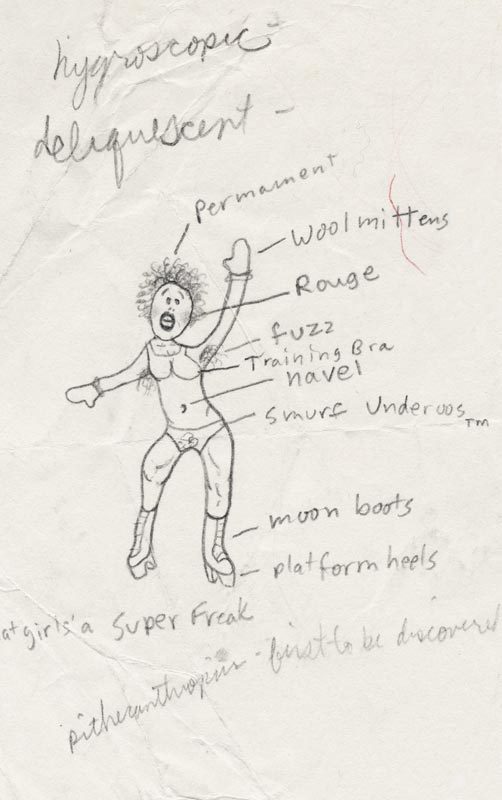 hygroscopic -
deliquescent -
permament
Wool mittens
Rouge
fuzz
Training Bra
navel
Smurf Underoos TM
moon boots
platform heels
at girls' a Super Freak
- first to be discovered